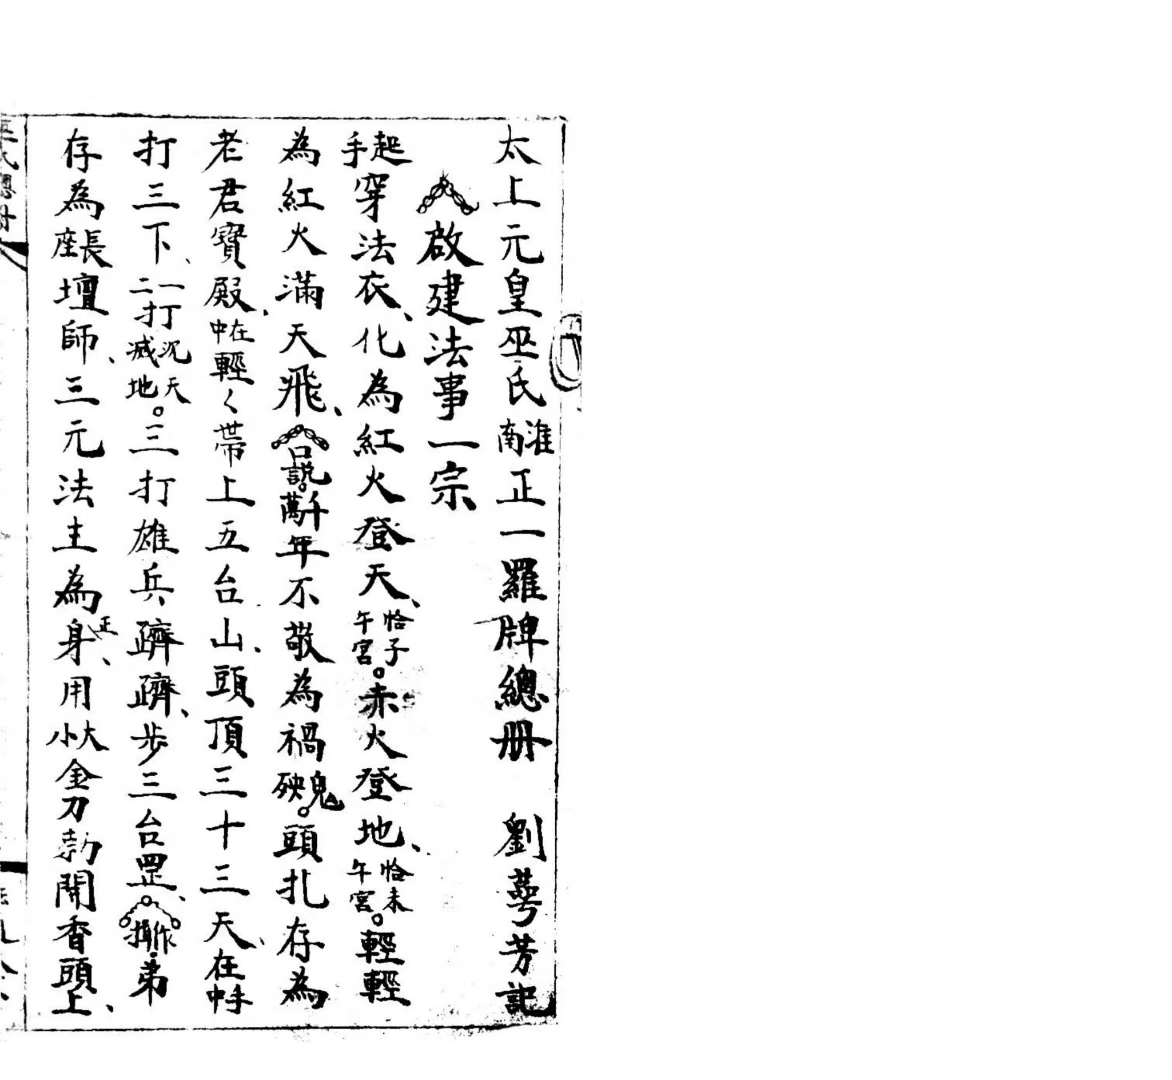 太上元皇巫氏淮南正一羅牌總册　劉萼芳記
啟建法事一宗
起手穿法衣、化為紅火登天、恰子午宮。赤火登地、恰未午宮。輕輕
為紅火滿天飛、口説。千萬年不敬為禍鬼殃。頭扎存為
老君寶殿、在中輕く帶上五台山、頭頂三十三天、在手中
打三下、一打沉天二打滅地。三打雄兵躋躋、步三台罡、作揖。弟
存為長座壇師、三元法主為正身、用大小金刀勅開香頭上、